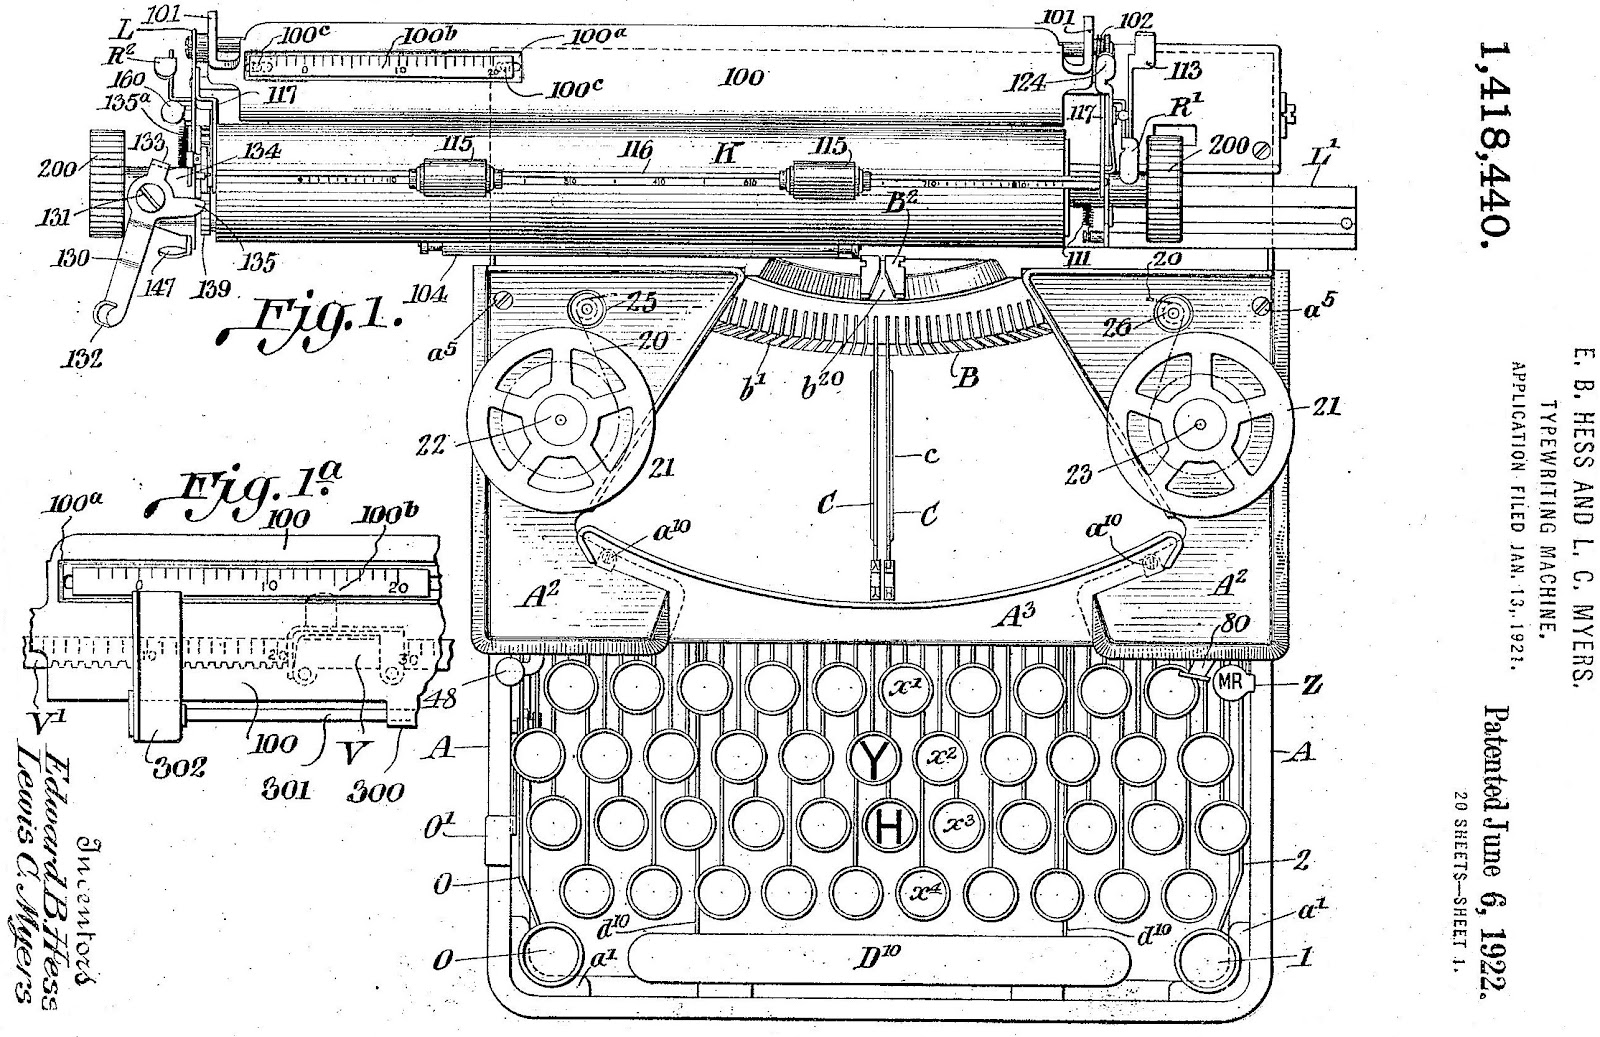 1,418,440.
E. B. HESS AND L. C. MYERS.
TYPEWRITING MACHINE.
APPLICATION FILED JAN. 13, 1921.
Patented June 6, 1922.
20 SHEETS—SHEET 1.
101
L
R²
160
135ᵃ
133
200
131
130
132
147
139
135
134
117
100ᶜ
100ᵇ
100ᵃ
100ᶜ
100
0 10 20
115
116
K
115
101
102
124
113
117
R¹
200
L¹
111
104
B²
Fig. 1.
a⁵
25
20
22
21
b¹
b²⁰
B
20
26
a⁵
21
23
c
C
C
a¹⁰
a¹⁰
A²
A³
A²
80
MR
Z
48
x¹
A
Y
x²
A
O¹
H
x³
2
O
x⁴
d¹⁰
d¹⁰
a¹
O
a¹
D¹⁰
1
Fig. 1ᵃ
100ᵃ
100
100ᵇ
0 10 20
10 20 30
V¹
302
100
301
V
300
Inventors
Edward B. Hess
Lewis C. Myers